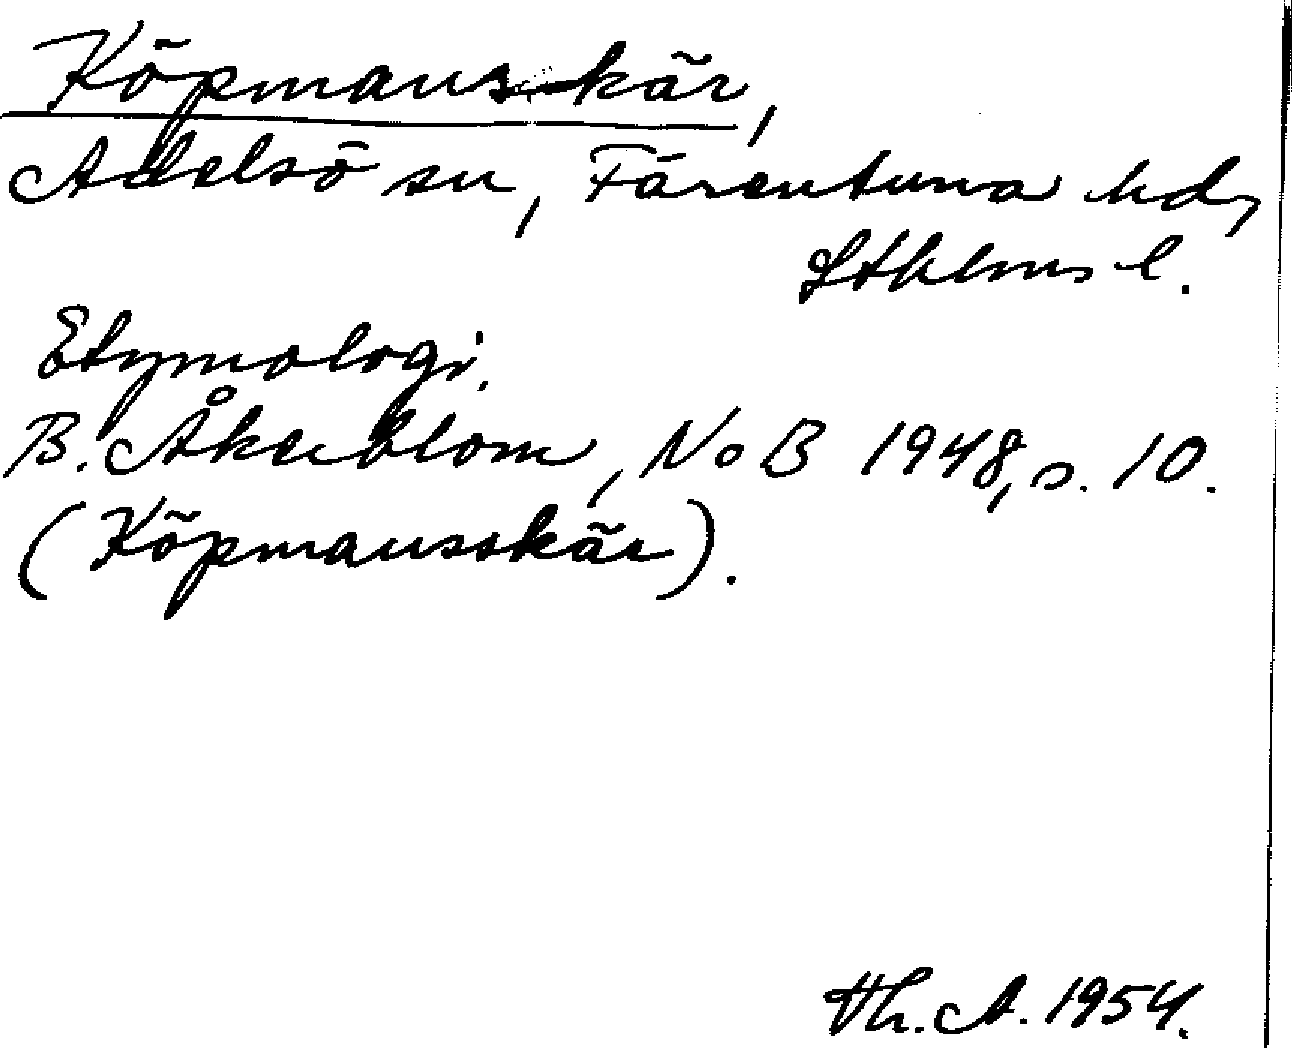 Köpmanskär,
Adelsö sn, Färentuna hd,
Sthlms l.
Etymologi.
B. Åkerblom, NoB 1948, s. 10.
(Köpmansskär).
Th. A. 1954.